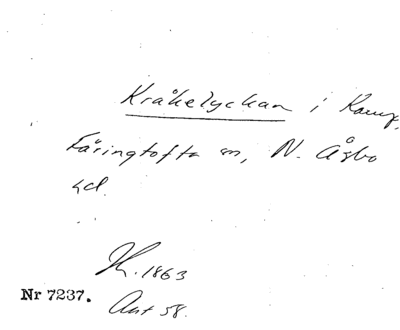 Kråkelyckan i Kamp,
Färingtofta sn, N. Åsbo
hd.
1863
Nr 7237. Ant 58.